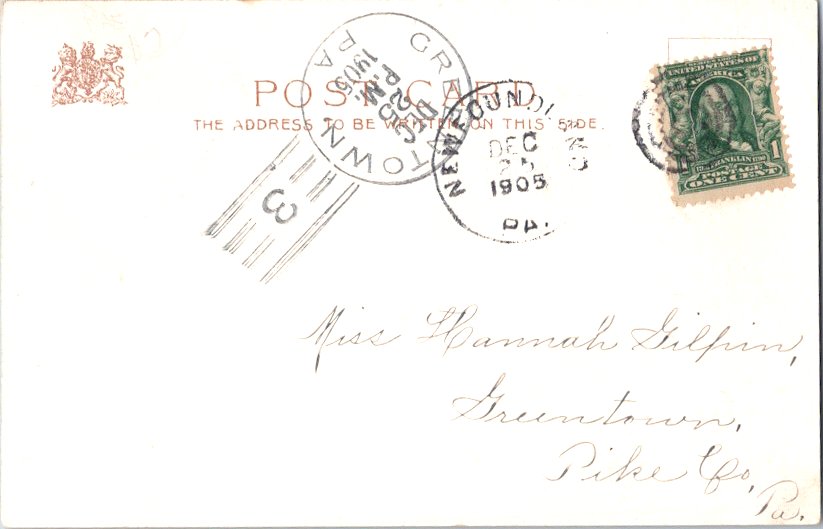 POST CARD
THE ADDRESS TO BE WRITTEN ON THIS SIDE.
GREENTOWN
PA
DEC
2
P.M.
1905
3
NEWFOUNDL
DEC
1905
PA.
UNITED STATES OF
AMERICA
FRANKLIN
POSTAGE
ONE CENT
1
Miss Hannah Gilpin,
Greentown,
Pike Co,
Pa.